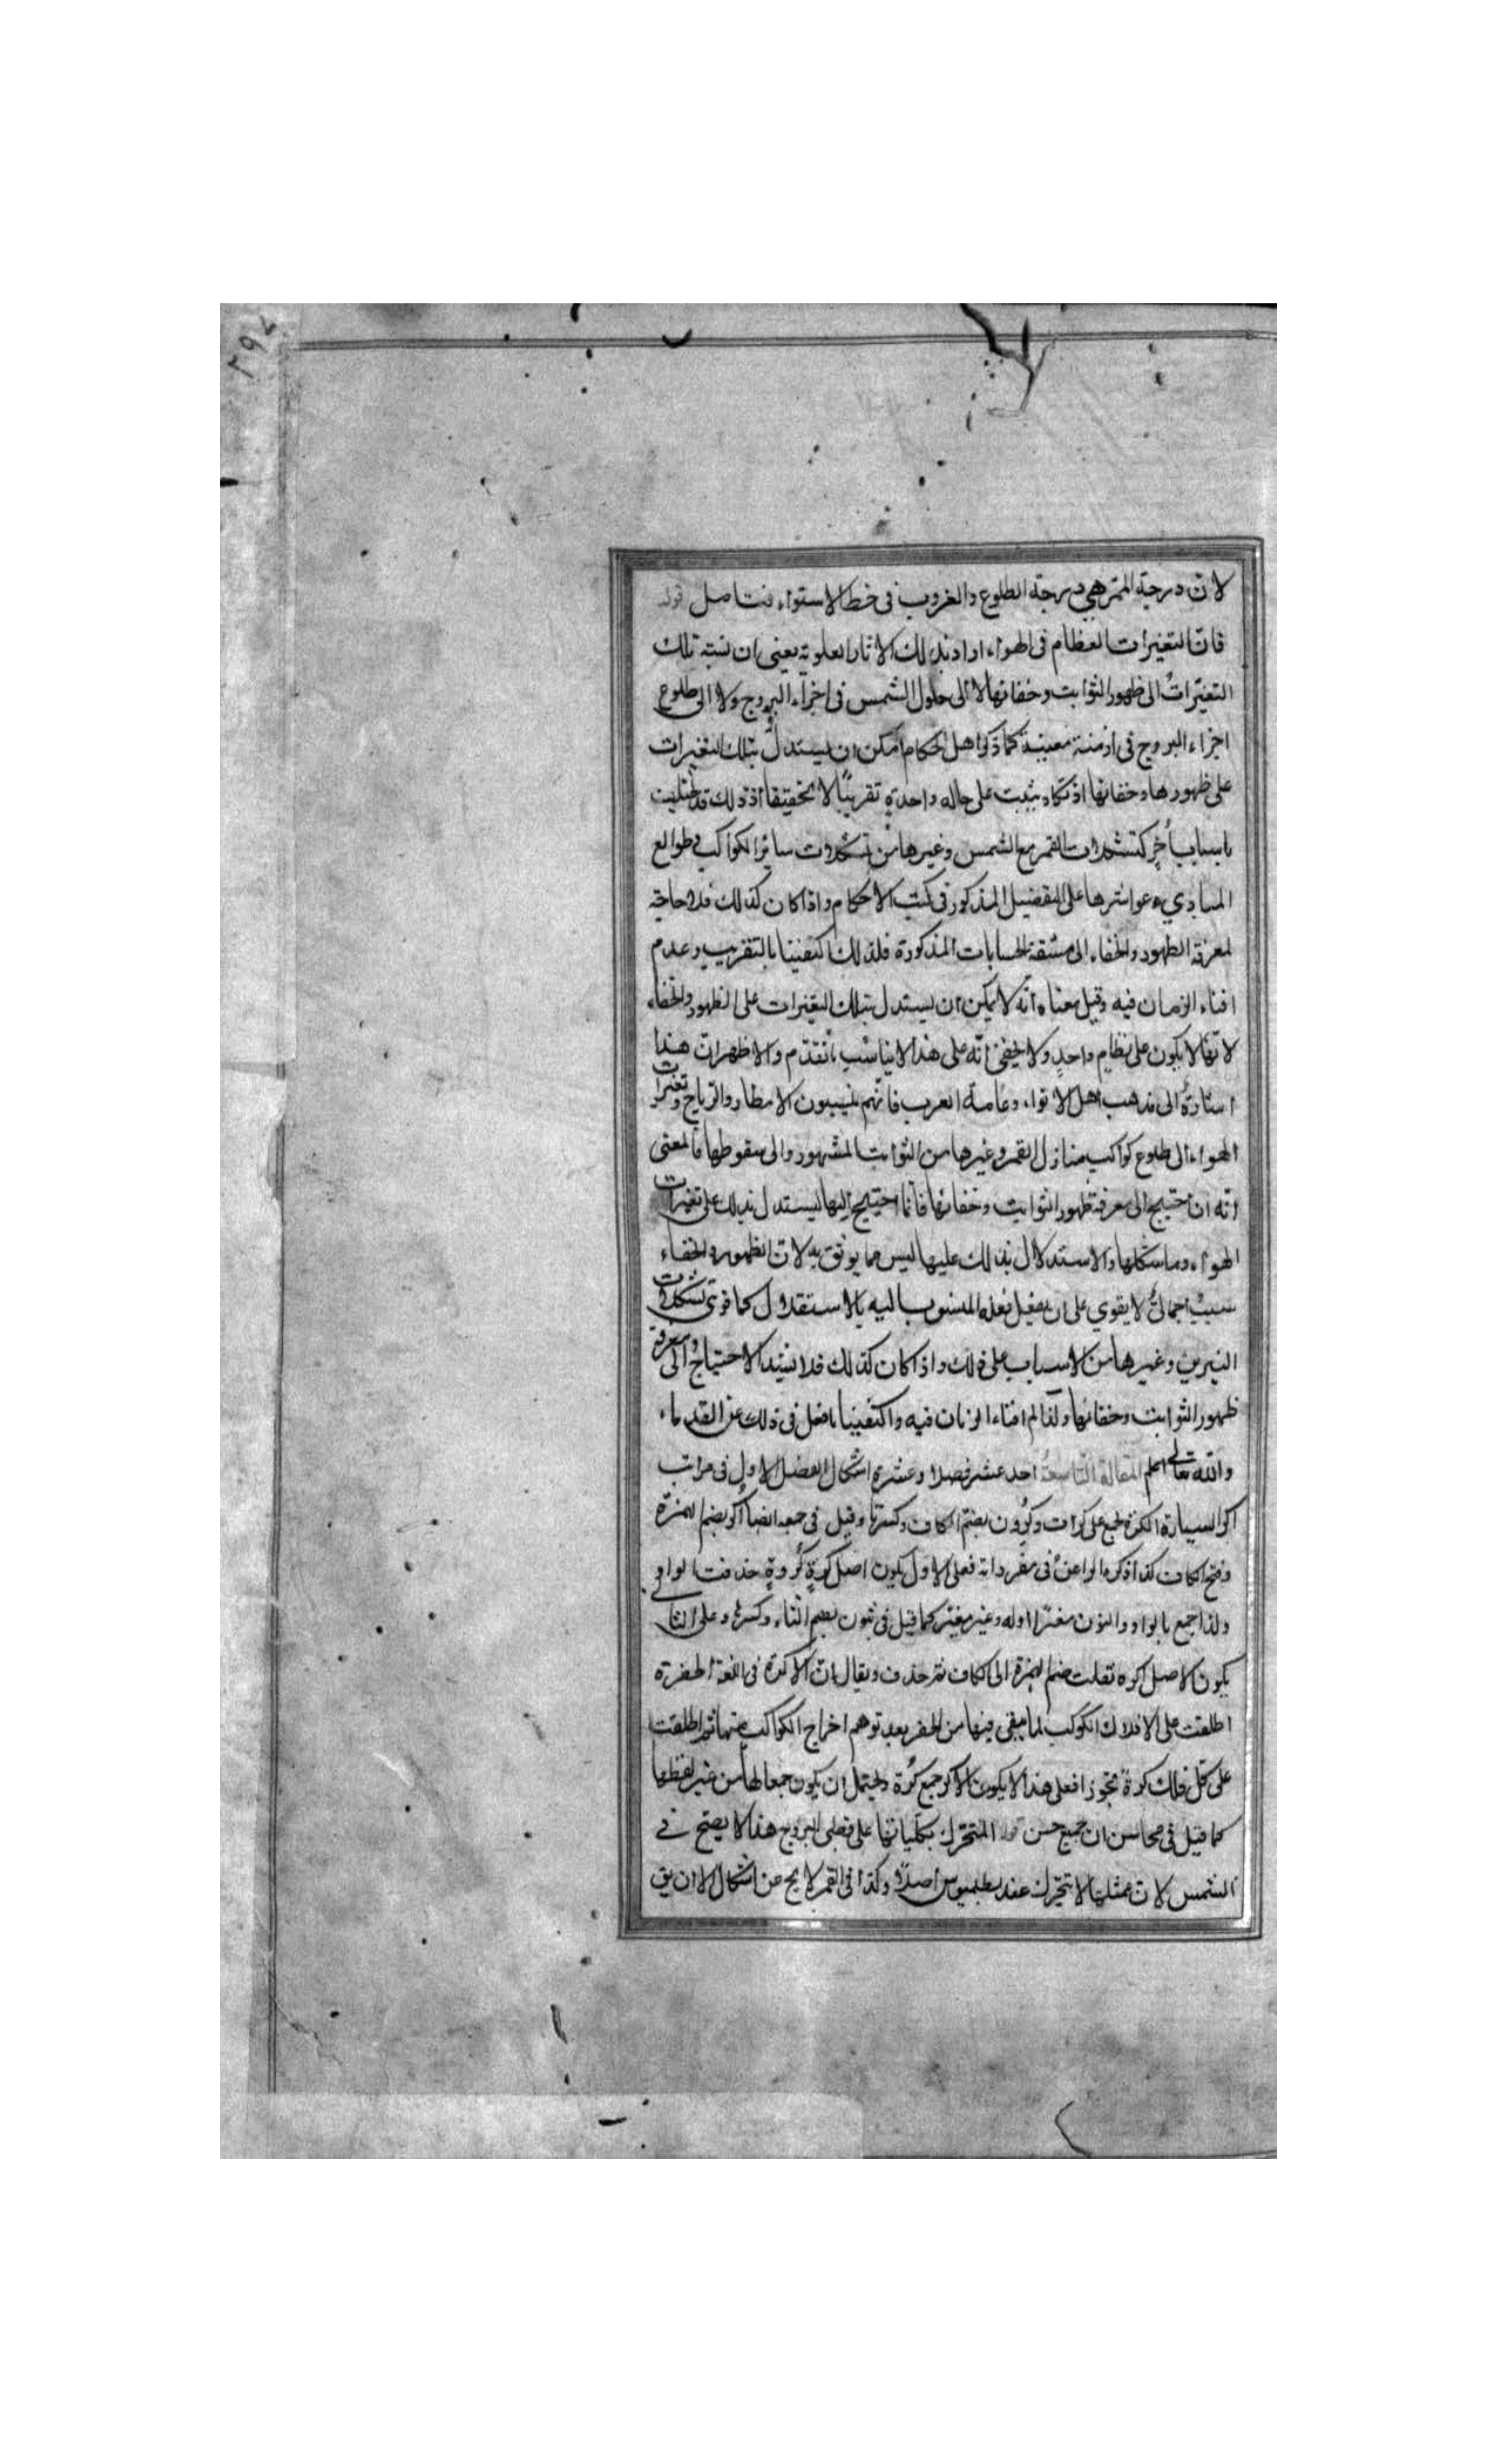 لان درجة الممر هي درجة الطلوع والغروب فى خط الاستواء فتامل قوله
فان التغيرات العظام فى الهواء اراد بذلك الاثار العلوية يعنى ان نسبة تلك
التغيّرات الى ظهور الثوابت وخفائها لا الى حلول الشمس فى اجزاء البروج ولا الى طلوع
اجزاء البروج فى ازمنة معينة كما ذكر اهل الاحكام امكن ان يستدل بتلك التغيرات
على ظهورها وخفائها اذ تكاد يثبت على حاله واحدة تقريبًا لا تحقيقا اذ ذلك قد يختلف
باسباب أُخر كتشكلات القمر مع الشمس وغيرها من تشكلات سائر الكواكب فى طوالع
المبادي وعواشرها على التفصيل المذكور فى كتب الاحكام واذا كان كذلك فلا حاجة
لمعرفة الظهور والخفاء الى مشقة الحسابات المذكورة فلذلك اكتفينا بالتقريب وعدم
افناء الزمان فيه وقيل معناه انّه لا يمكن ان يستدل بتلك التغيرات على الظهور والخفاء
لانها لا يكون على نظام واحدٍ ولا يخفى انّه على هذا لا يناسب ما تقدّم والاظهر ان هذا
اشارة الى مذهب اهل الانواء وعامة العرب فانّهم ينسبون الامطار والرياح وتغيرات
الهواء الى طلوع كواكب منازل القمر وغيرها من الثوابت المشهور والى سقوطها فالمعنى
انّه ان احتيج الى معرفة ظهور الثوابت وخفائها فانما احتيج اليها ليستدل بذلك على تغيرات
الهواء وما شاكلها والاستدلال بذلك عليها ليس مما يوثق به لان الظهور والخفاء
سببٌ اجمالىٌّ لا يقوي على ان يفعل فعله المنسوب اليه بالاستقلال كما قوى تشكلات
النيرين وغيرها من الاسباب على ذلك واذا كان كذلك فلا يشتد الاحتياج الى معرفة
ظهور الثوابت وخفائها ولذا لم افناء الزمان فيه واكتفينا بما فعل فى ذلك عن القدماء
والله تعالى اعلم المقالة التاسعة احد عشر فصلا وعشرة اشكال الفصل الاول فى مراتب
اكر السيارة الكرة تجمع على كرات وكُرُون بضم الكاف وكسرها وقيل فى جمعه ايضا أُكر بضم الهمزة
وفتح الكاف كذا ذكره الراغب فى مفرداته فعلى الاول يكون اصل كرةٍ كُروةٍ حذفت الواو
ولذا جمع بالواو والنون مغيّرًا اوله وغير مغيّر كما قيل فى ثبون بضم الثاء وكسرها وعلى الثانى
يكون الاصل اكره نقلت ضم الهمزة الى الكاف ثم حذف ويقال ان الاكرة فى اللغة الحفرة
اطلقت على الافلاك الكوكب لما يبقى فيها من الحفر بعد توهم اخراج الكواكب منها ثم اطلقت
على كل فلك كرةً تجوزا فعلى هذا لا يكون الاكر جمع كُرة ويحتمل ان يكون جمعا لها من غير لفظها
كما قيل فى محاسن ان جمع حسن قوله المتحرّك بكلياتها على قطبى البروج هذا لا يصح فى
الشمس لان ممثلها لا تتحرّك عند بطلميوس اصلًا وكذا فى القمر لا يخ عن اشكال الا ان يق